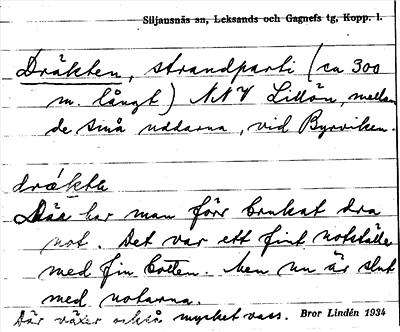 Siljansnäs sn, Leksands och Gagnefs tg, Kopp. l.
Dräkten, strandparti (ca 300
m. långt) NNV Lillön, mellan
de små uddarna, vid Byrviken.
dräkta
Där har man förr brukat dra
not. Det var ett fint notställe
med fin botten. Men nu är slut
med notarna.
Där växer också mycket vass. Bror Lindén 1934